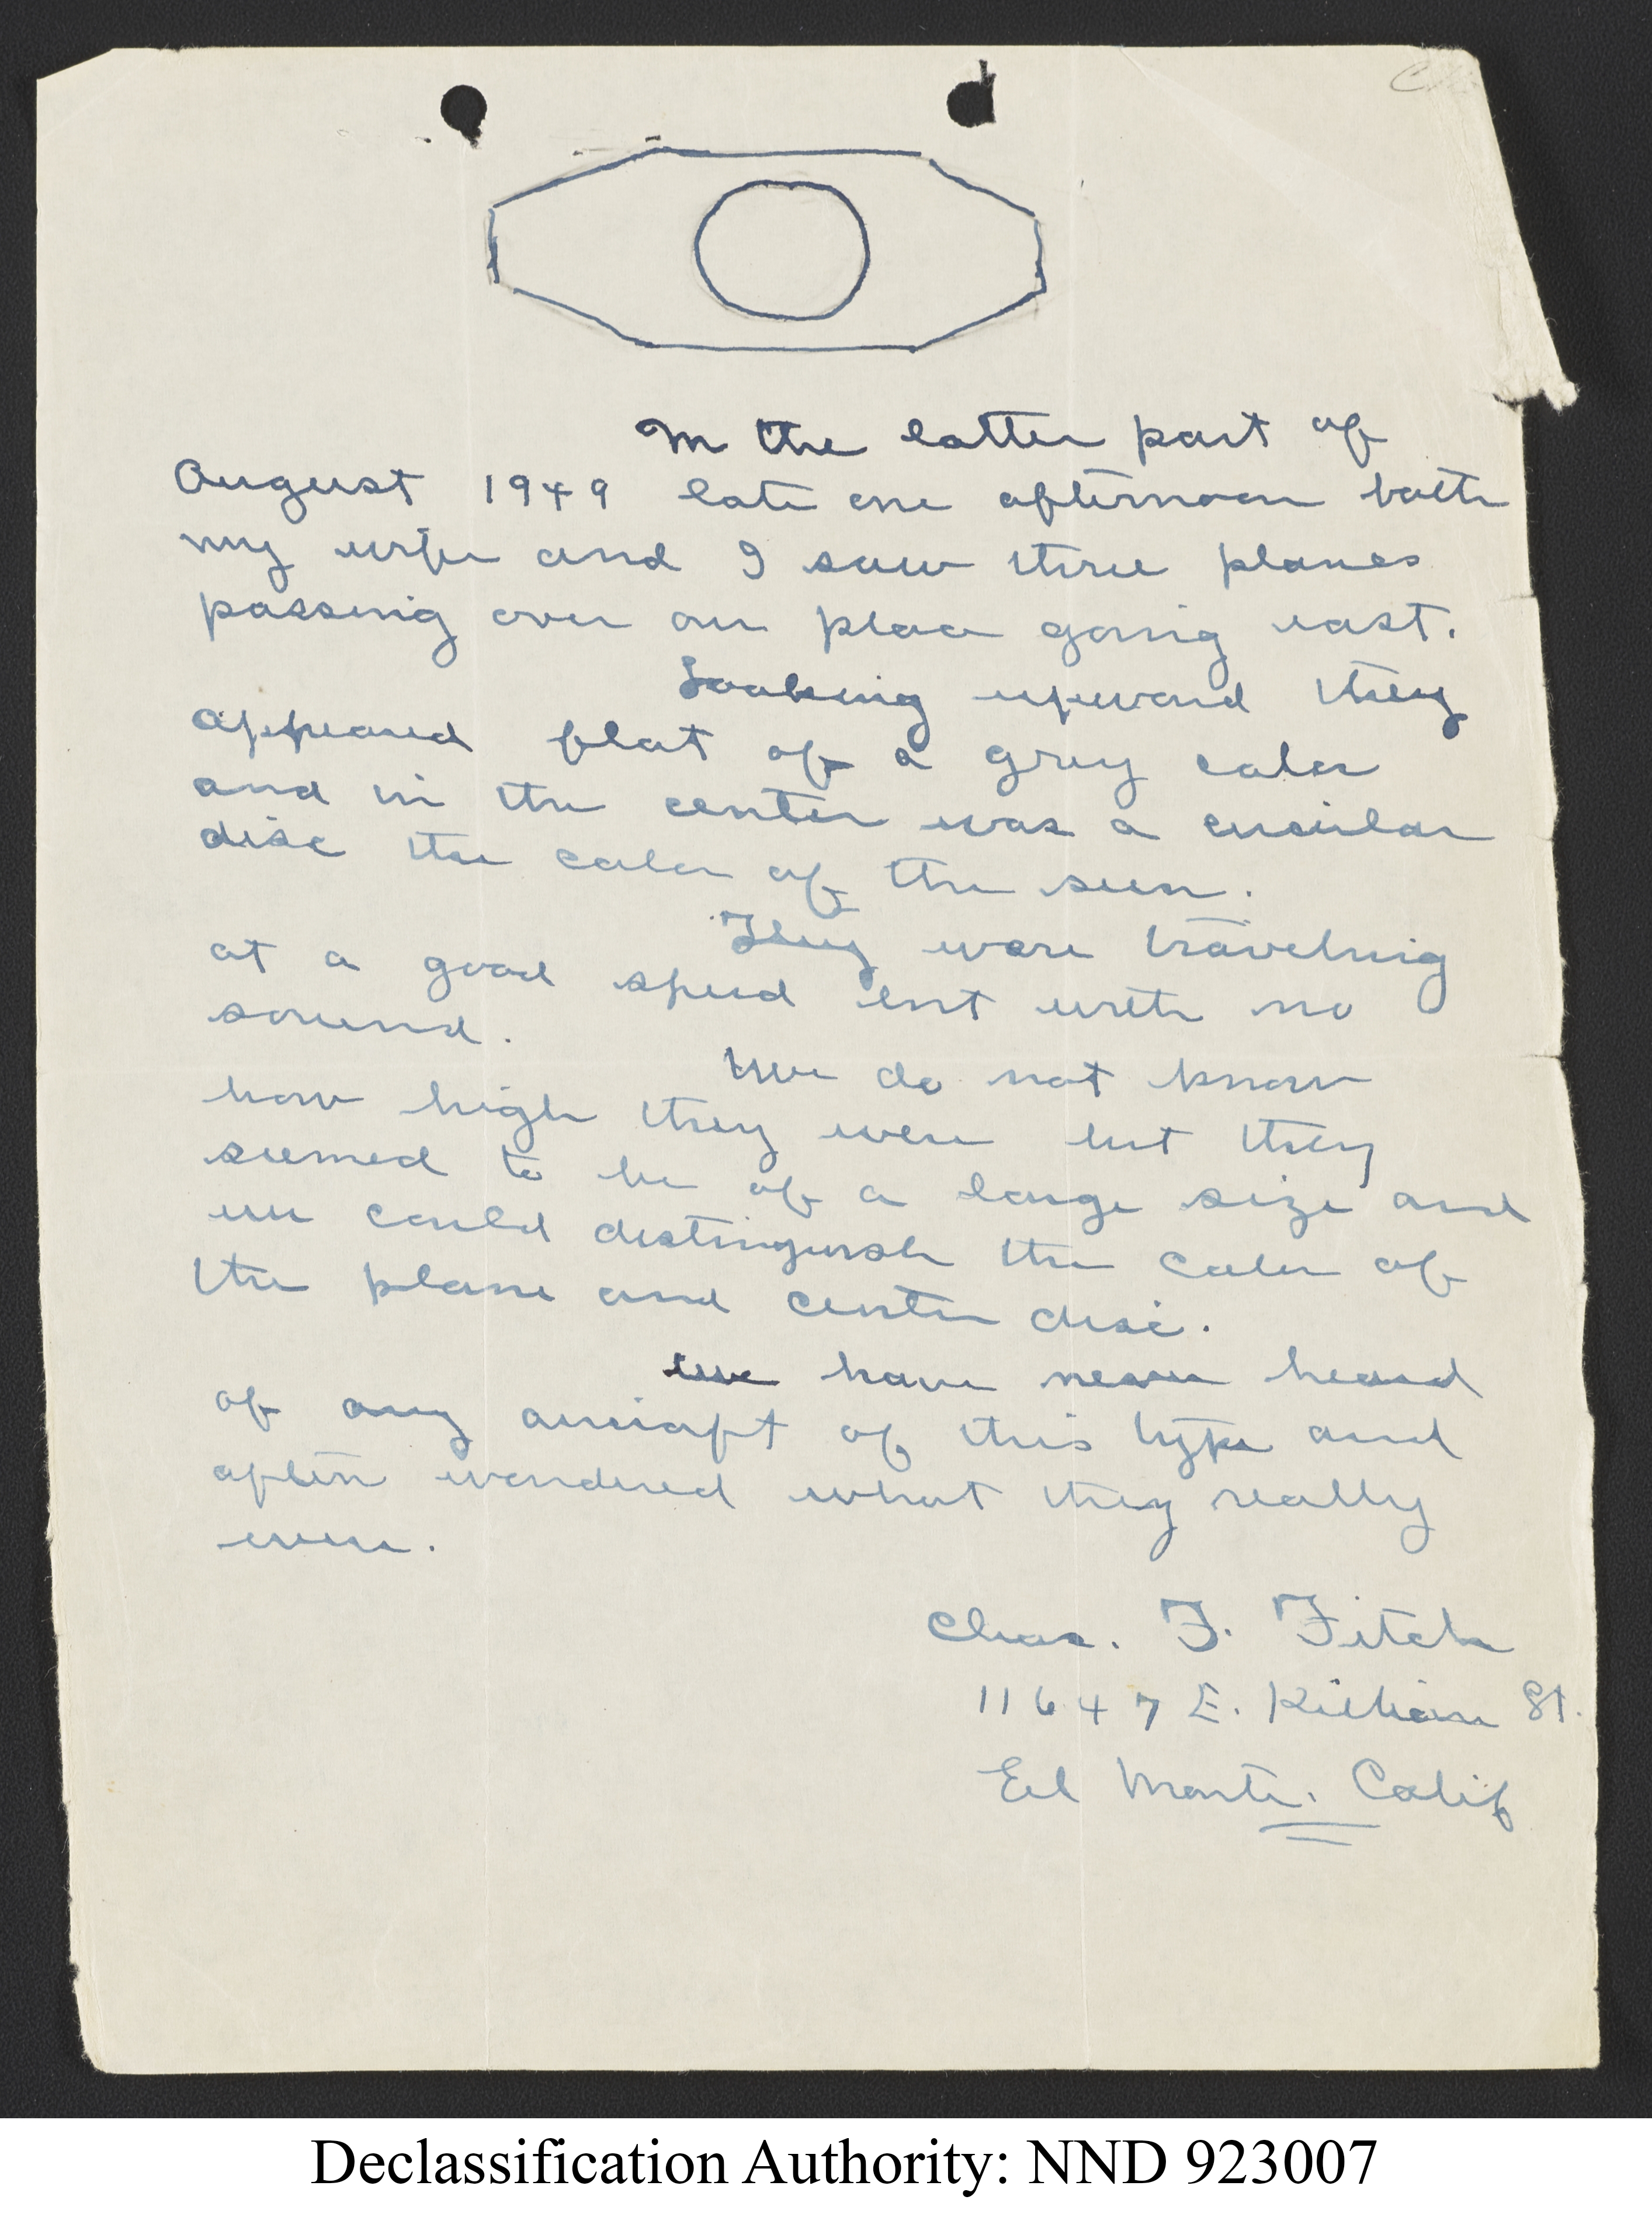 In the latter part of
August 1949 late one afternoon both
my wife and I saw three planes
passing over our place going east.
Looking upward they
appeared flat of a grey color
and in the center was a circular
disc the color of the sun.
They were traveling
at a good speed but with no
sound.
We do not know
how high they were but they
seemed to be of a large size and
we could distinguish the color of
the plane and center disc.
We have never heard
of any aircraft of this type and
often wondered what they really
were.
Chas. F. Fitch
11647 E. Killian St.
El Monte. Calif
Declassification Authority: NND 923007